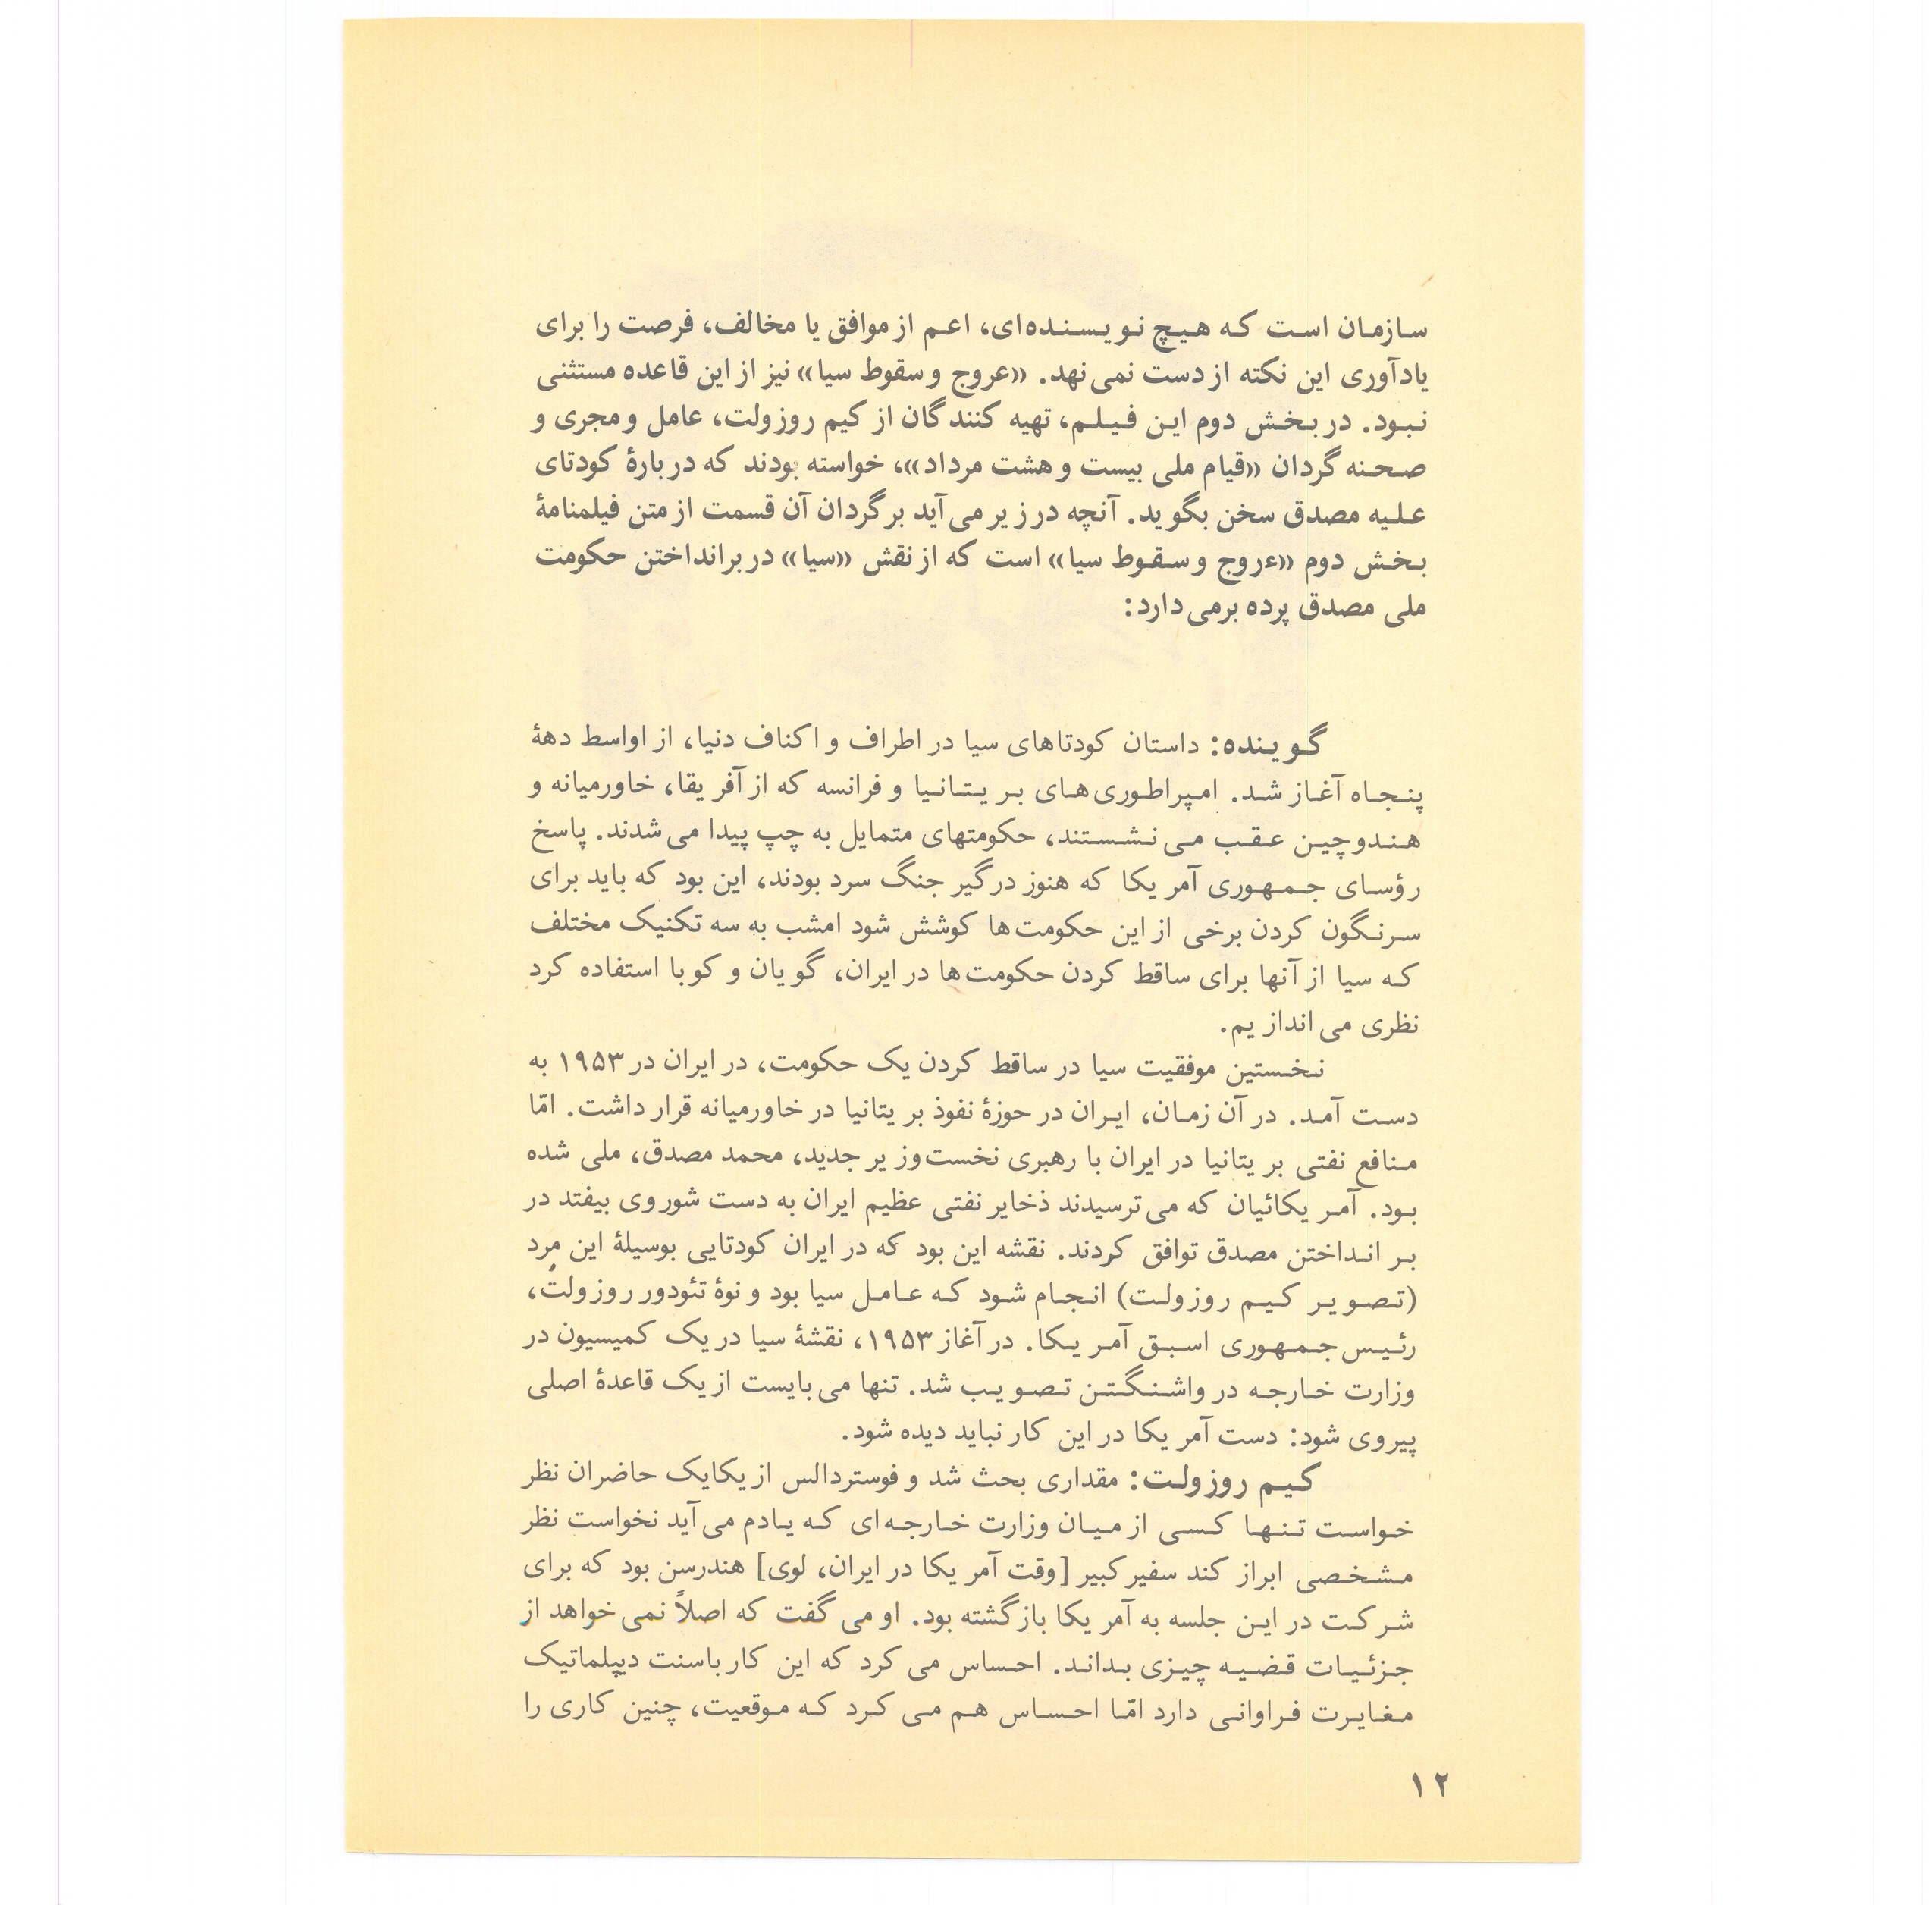 سازمان است که هیچ نویسنده‌ای، اعم از موافق یا مخالف، فرصت را برای
یادآوری این نکته از دست نمی‌نهد. «عروج و سقوط سیا» نیز از این قاعده مستثنی
نبود. در بخش دوم این فیلم، تهیه کنندگان از کیم روزولت، عامل و مجری و
صحنه گردان «قیام ملی بیست و هشت مرداد»، خواسته بودند که در بارهٔ کودتای
علیه مصدق سخن بگوید. آنچه در زیر می‌آید برگردان آن قسمت از متن فیلمنامهٔ
بخش دوم «ءروج و سقوط سیا» است که از نقش «سیا» در برانداختن حکومت
ملی مصدق پرده برمی‌دارد:
گوینده: داستان کودتاهای سیا در اطراف و اکناف دنیا، از اواسط دههٔ
پنجاه آغاز شد. امپراطوری‌های بریتانیا و فرانسه که از آفریقا، خاورمیانه و
هندوچین عقب می‌نشستند، حکومتهای متمایل به چپ پیدا می‌شدند. پاسخ
رؤسای جمهوری آمریکا که هنوز درگیر جنگ سرد بودند، این بود که باید برای
سرنگون کردن برخی از این حکومت‌ها کوشش شود امشب به سه تکنیک مختلف
که سیا از آنها برای ساقط کردن حکومت‌ها در ایران، گویان و کوبا استفاده کرد
نظری می‌اندازیم.
نخستین موفقیت سیا در ساقط کردن یک حکومت، در ایران در ۱۹۵۳ به
دست آمد. در آن زمان، ایران در حوزهٔ نفوذ بریتانیا در خاورمیانه قرار داشت. امّا
منافع نفتی بریتانیا در ایران با رهبری نخست‌وزیر جدید، محمد مصدق، ملی شده
بود. آمریکائیان که می‌ترسیدند ذخایر نفتی عظیم ایران به دست شوروی بیفتد در
بر انداختن مصدق توافق کردند. نقشه این بود که در ایران کودتایی بوسیلهٔ این مرد
(تصویر کیم روزولت) انجام شود که عامل سیا بود و نوهٔ تئودور روزولت،
رئیس جمهوری اسبق آمریکا. در آغاز ۱۹۵۳، نقشهٔ سیا در یک کمیسیون در
وزارت خارجه در واشنگتن تصویب شد. تنها می‌بایست از یک قاعدهٔ اصلی
پیروی شود: دست آمریکا در این کار نباید دیده شود.
کیم روزولت: مقداری بحث شد و فوستردالس از یکایک حاضران نظر
خواست تنها کسی از میان وزارت خارجه‌ای که یادم می‌آید نخواست نظر
مشخصی ابراز کند سفیر کبیر [وقت آمریکا در ایران، لوی] هندرسن بود که برای
شرکت در این جلسه به آمریکا بازگشته بود. او می‌گفت که اصلاً نمی‌خواهد از
جزئیات قضیه چیزی بداند. احساس می‌کرد که این کار باسنت دیپلماتیک
مغایرت فراوانی دارد امّا احساس هم می‌کرد که موقعیت، چنین کاری را
۱۲